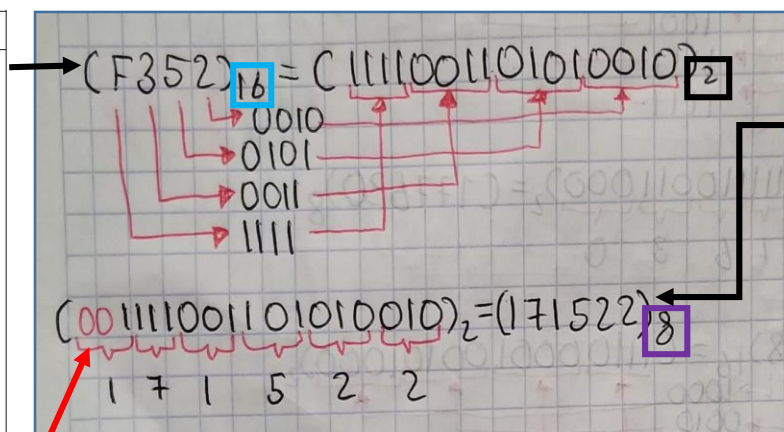 (F352)16 = (1111001101010010)2
0010
0101
0011
1111
(001111001101010010)2=(171522)8
1 7 1 5 2 2